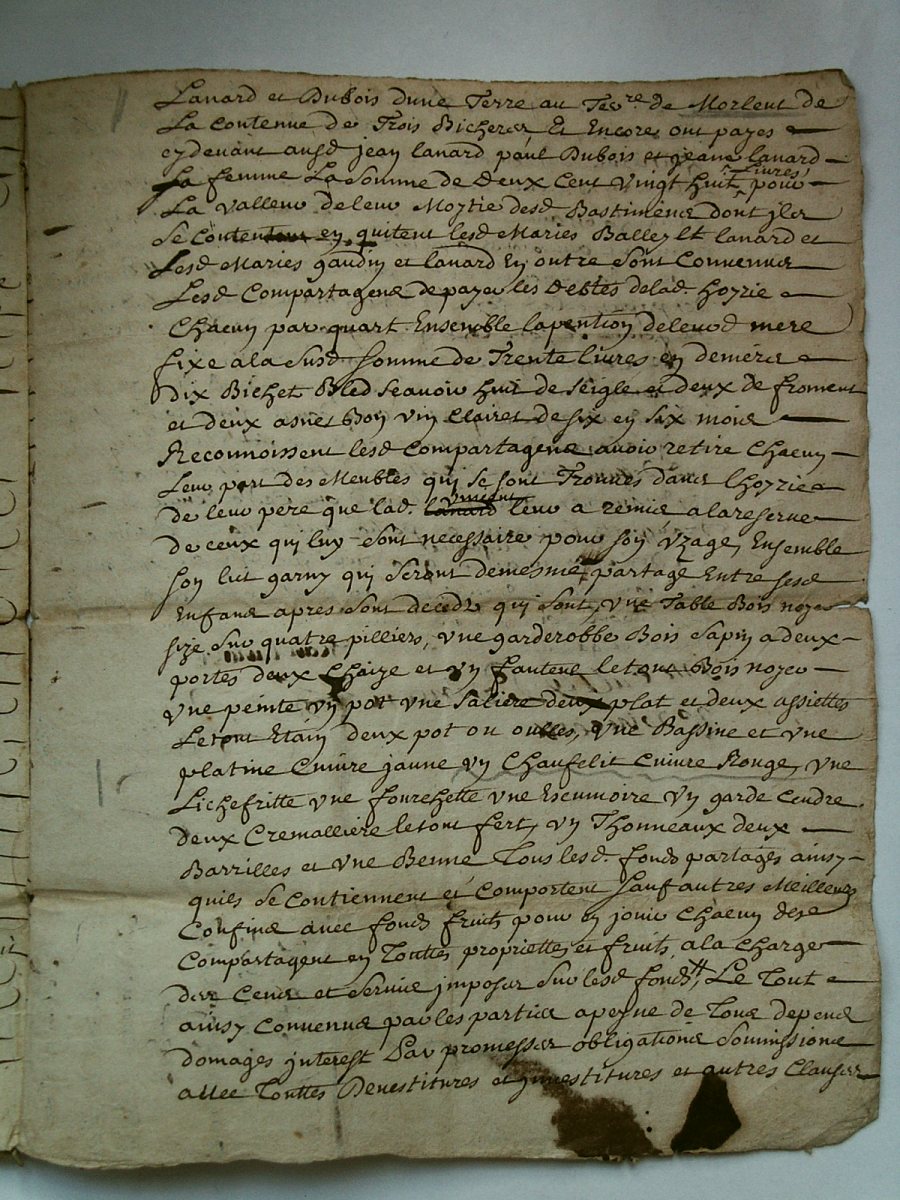 Lanard et Dubois dune Terre au Terre de Morlent de
La Contenue de Trois Bicheree Et Encore ont payes
cydevant ausd jean lanard paul Dubois et jeane lanard
Livres
Sa femme La Somme de Deux Cent Vingt huit pour
La Valleur de leur Moytie desd Bastimens dont jls
Se Contentent en quitent lesd Maries Balley et lanard et
Lesd Maries gaudin et lanard En outre Sont Convenus
Lesd Compartagens de payer les Debtes delad hoyrie
Chacun par quart Ensemble la pention de leurd mere
fixe a la Susd Somme de Trente livres en denieres
Dix Bichet Bled Scavoir huit de Seigle et deux de froment
et deux asnes Bon vin Clairet de six en six mois
Reconnoissent lesd Compartagens avoir retire Chacun
Leur part des Meubles qui se sont Trouves dans lhoyrie
vincent
de leur pere que lad. lanard leur a remis a la reserve
de ceux qui luy Sont necessaire pour Son Vzage, Ensemble
Son lit garny qui Seront demesme partage Entre sesd
Enfans apres Sont decedz qui Sont, vne Table Bois noyer
size Sur quatre pilliers, vne garderobbe Bois Sapin a deux
portes deux Chaize et vn fauteul le tout Bois noyer
Vne peinte vn pot vne Saliere deux plat et deux assiettes
Le tout Etain deux pot ou oulles, Vne Bassine et vne
platine Cuivre jaune vn Chaufelit Cuivre Rouge, vne
Lichefritte vne fourchette vne Escumoire Vn garde Cendre
deux Cremalliere le tout fert, vn Thonneaux deux
Barrilles et vne Benne Tous lesd. fonds partages ainsy
quils Se Contiennent et Comportent Sauf autres Meilleurs
Confins avec fonds fruits pour en jouir Chacun desd
Compartagent en Touttes proprietes et fruits, a la Charge
des Cens et Servis jmposes Sur lesd fonds, Le Tout
ainsy Convenus par les parties a peyne de Tous depens
domages jnterest Par promesses obligations Soumissions
avec Touttes Devestitures et jnvestitures et autres Clauses